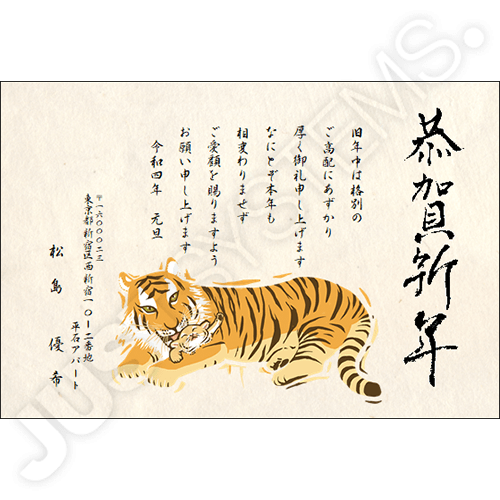 恭賀新年
旧年中は格別の
ご高配にあずかり
厚く御礼申し上げます
なにとぞ本年も
相変わりませず
ご愛顧を賜りますよう
お願い申し上げます
令和四年 元旦
〒一六〇〇〇二三
東京都新宿区西新宿一〇ー二番地
平石アパート
松島 優希
JUSTSYSTEMS.